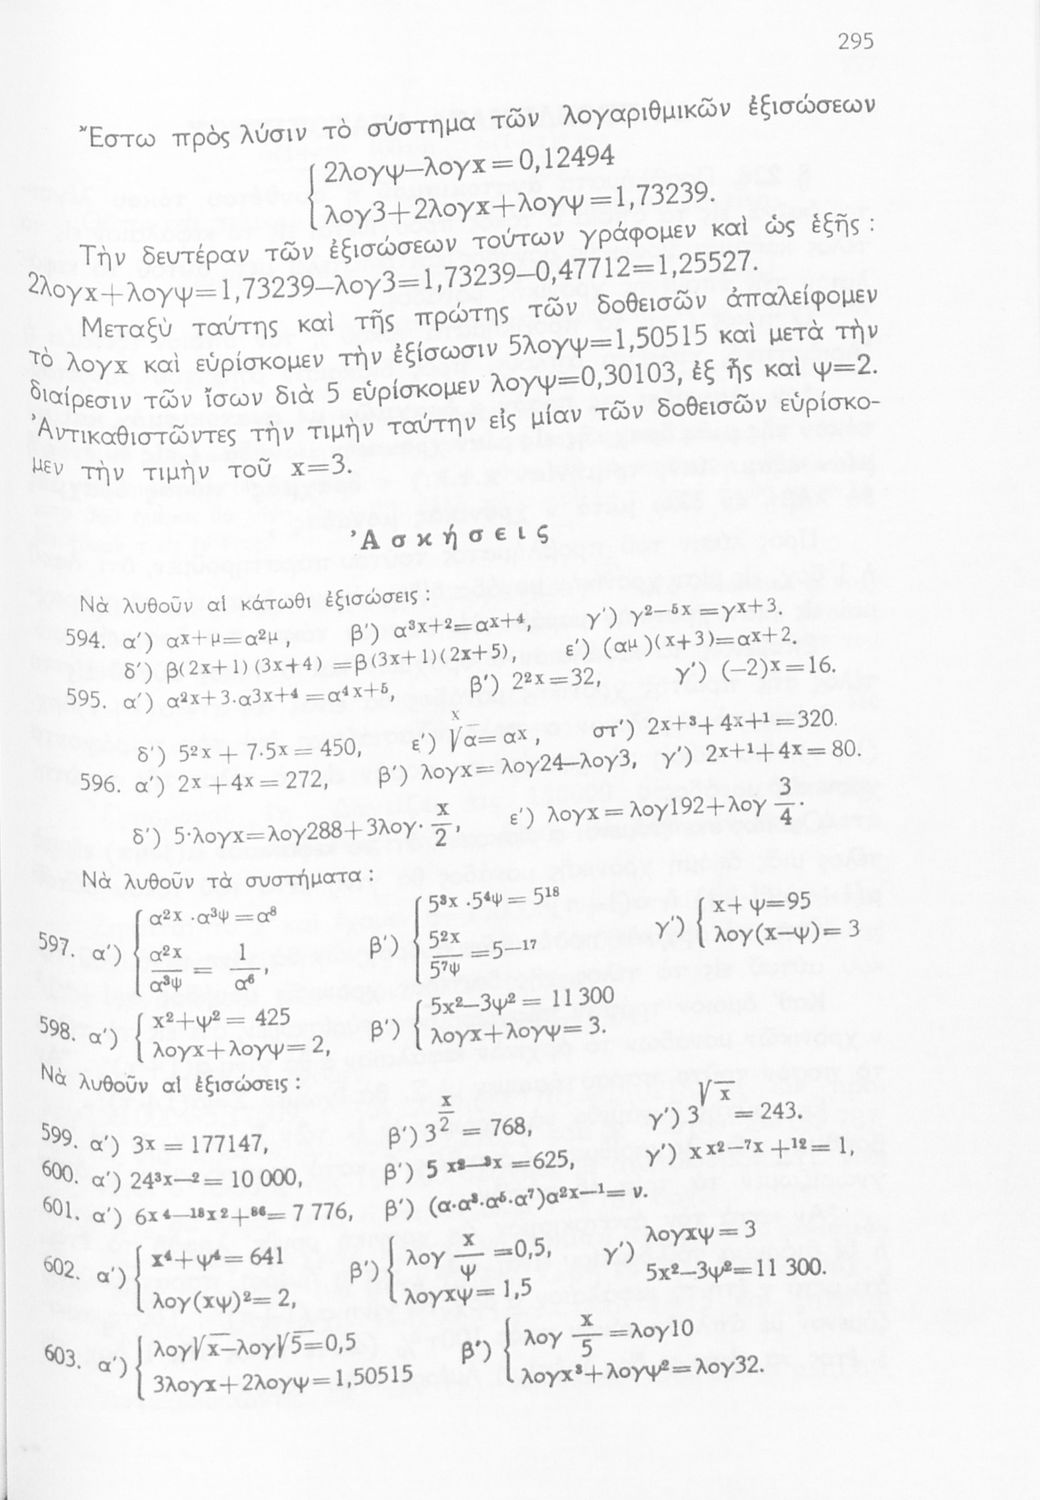 295
Ἔστω πρὸς λύσιν τὸ σύστημα τῶν λογαριθμικῶν ἐξισώσεων
2λογψ—λογχ = 0,12494
λογ3+2λογχ+λογψ = 1,73239.
Τὴν δευτέραν τῶν ἐξισώσεων τούτων γράφομεν καὶ ὡς ἑξῆς :
2λογχ+λογψ=1,73239—λογ3=1,73239—0,47712=1,25527.
Μεταξὺ ταύτης καὶ τῆς πρώτης τῶν δοθεισῶν ἀπαλείφομεν
τὸ λογχ καὶ εὑρίσκομεν τὴν ἐξίσωσιν 5λογψ=1,50515 καὶ μετὰ τὴν
διαίρεσιν τῶν ἴσων διὰ 5 εὑρίσκομεν λογψ=0,30103, ἐξ ἧς καὶ ψ=2.
Ἀντικαθιστῶντες τὴν τιμὴν ταύτην εἰς μίαν τῶν δοθεισῶν εὑρίσκο-
μεν τὴν τιμὴν τοῦ x=3.
Ἀσκήσεις
Νὰ λυθοῦν αἱ κάτωθι ἐξισώσεις :
594. α′) αx+μ=α²μ, β′) α³x+²=αx+⁴, γ′) γ²—⁵x =γx+3.
δ′) β(2x+1)(3x+4) =β(3x+1)(2x+5), ε′) (αμ)(x+3)=αx+2.
595. α′) α²x+3·α3x+4 =α⁴x+⁵, β′) 2²x=32, γ′) (—2)x=16.
δ′) 5²x + 7·5x = 450, ε′) x√α= αx, στ′) 2x+³+ 4x+¹ =320.
596. α′) 2x +4x = 272, β′) λογx= λογ24—λογ3, γ′) 2x+¹+4x = 80.
δ′) 5·λογx=λογ288+3λογ· x/2, ε′) λογx = λογ192+λογ 3/4·
Νὰ λυθοῦν τὰ συστήματα :
597. α′) α²x ·α³ψ =α⁸ β′) 5³x ·5⁴ψ = 5¹⁸ γ′) x+ ψ=95
α²x/α³ψ = 1/α⁶, 5²x/5⁷ψ =5—¹⁷ λογ(x—ψ)= 3
598. α′) x²+ψ² = 425 β′) 5x²—3ψ² = 11300
λογx+λογψ= 2, λογx+λογψ= 3.
Νὰ λυθοῦν αἱ ἐξισώσεις :
599. α′) 3x = 177147, β′) 3 x/2 = 768, γ′) 3 √x = 243.
600. α′) 24³x—² = 10 000, β′) 5 x²—³x =625, γ′) x x²—⁷x +¹² = 1,
601. α′) 6x⁴—¹⁸x²+⁸⁶= 7 776, β′) (α·α³·α⁵·α⁷)α²x—¹= ν.
602. α′) x⁴+ψ⁴= 641 β′) λογ x/ψ =0,5, γ′) λογxψ = 3
λογ(xψ)²= 2, λογxψ= 1,5 5x²—3ψ²=11 300.
603. α′) λογ√x—λογ√5=0,5 β′) λογ x/5 =λογ10
3λογx+2λογψ=1,50515 λογx³+λογψ²=λογ32.